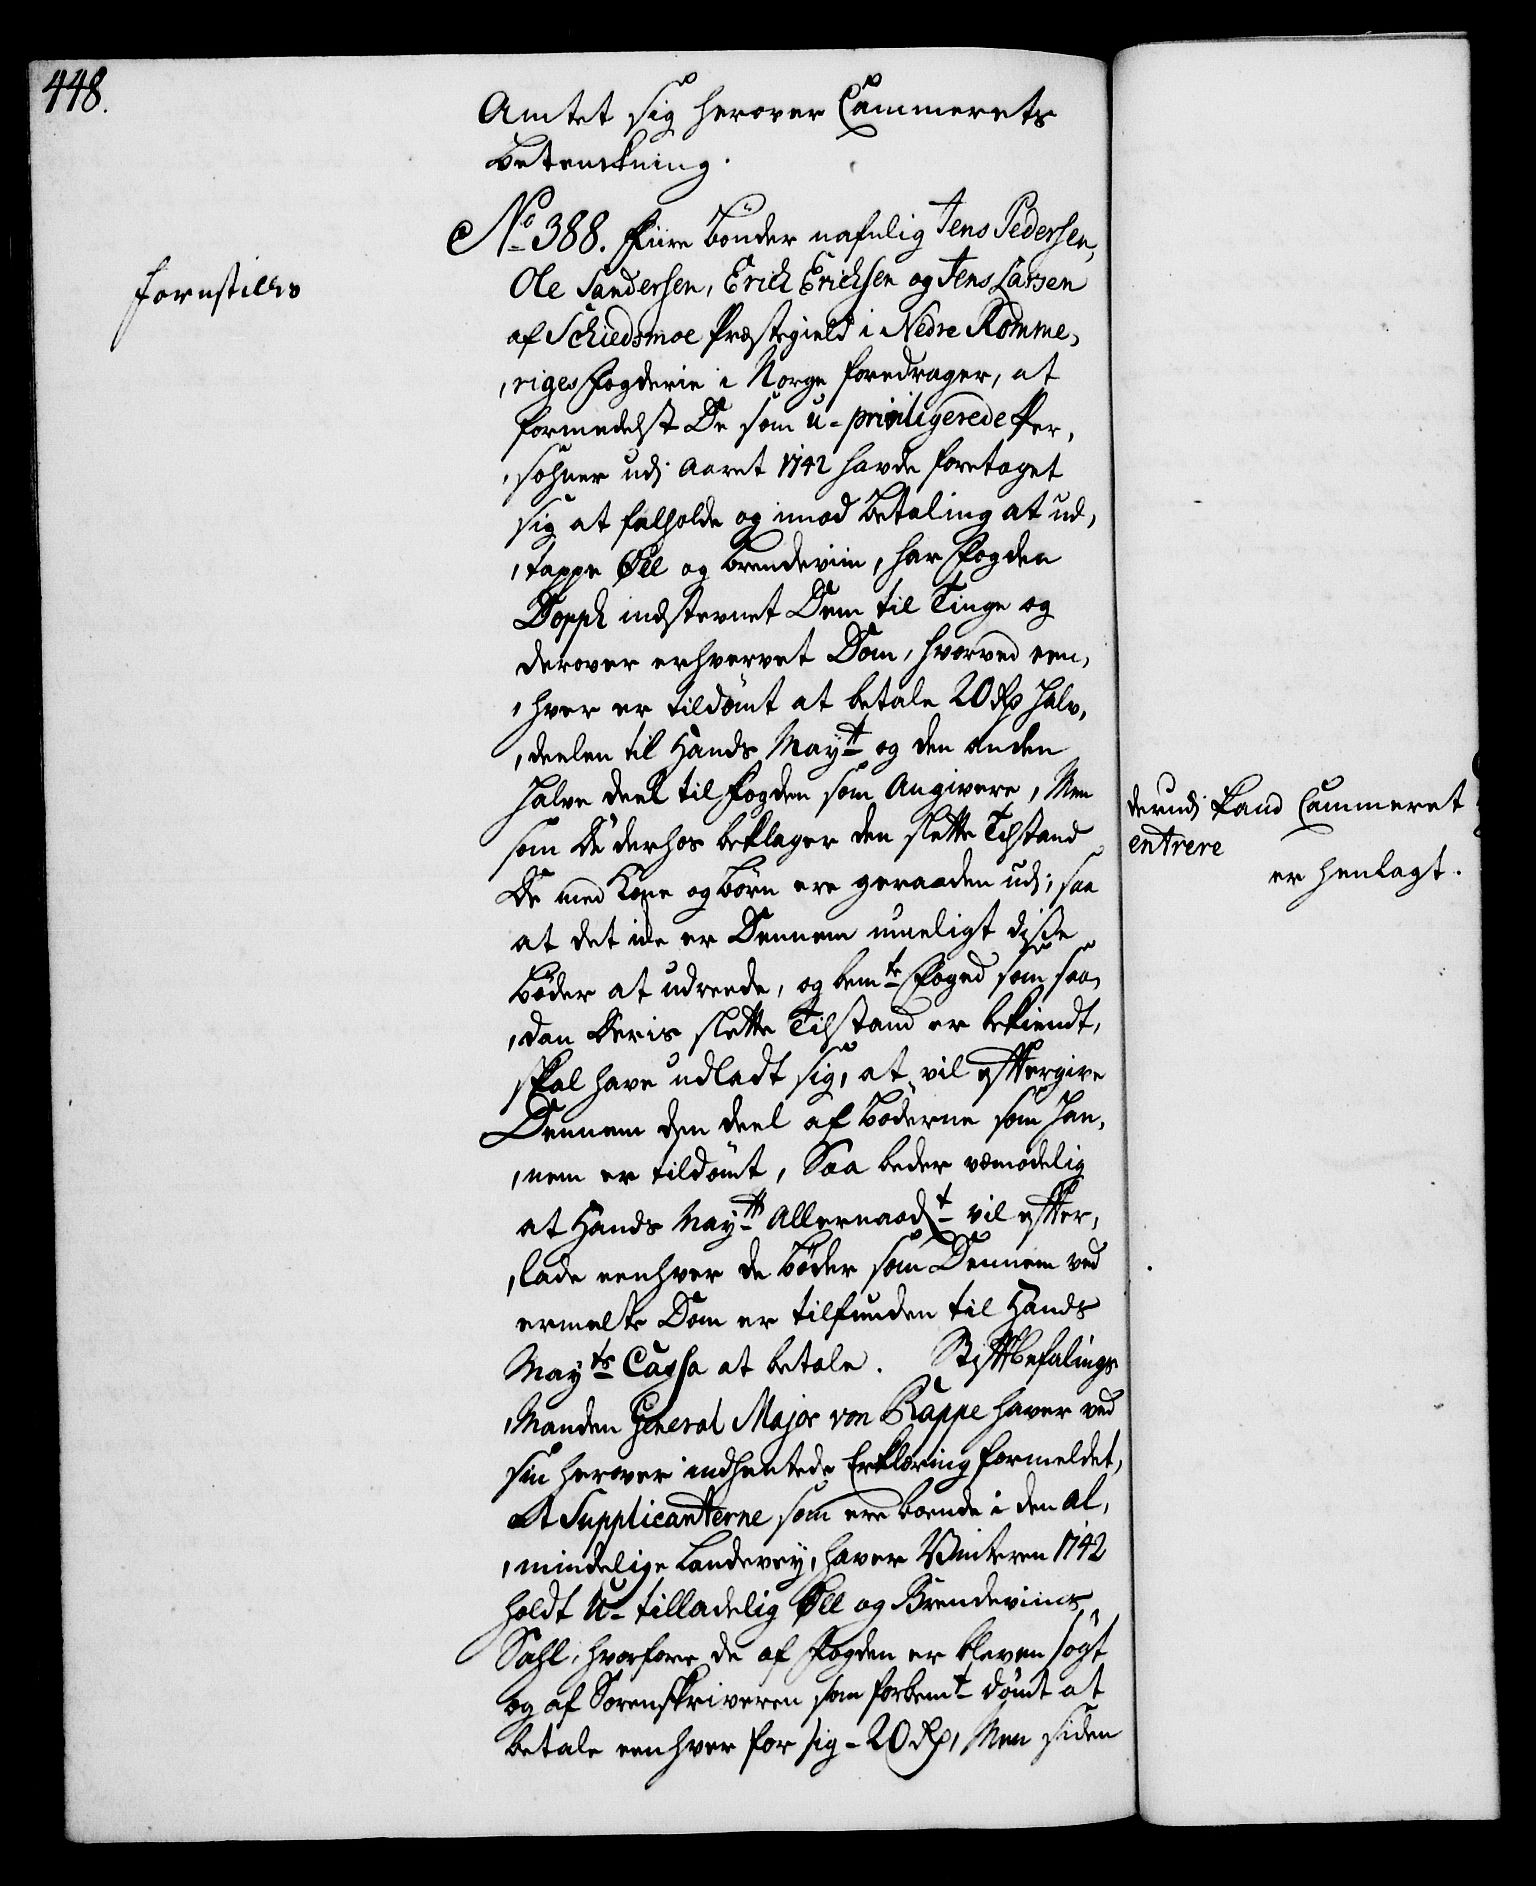 448.
Amtet sig herover Cammerets
Betenckning.
forestilles
No 388. Fiire Bönder nafnlig Jens Pedersen,
Ole Sandersen, Erich Erichsen og Jens Larsen
af Schiedsmoe Præstegield i Nedre Romme,
,riges Fogderie i Norge foredrager, at
formedelst De som u-priviligerede Per,
,sohner udj Aaret 1742 havde foretaget
sig at falholde og imod Betaling at ud,
,tappe Øll og Brendeviin, har Fogden
Dopph indstevnet Dem til Tinge og
derover erhvervet Dom, hvorved een,
,hver er tildömt at betale 20 Rd Halv,
,deelen til Hands Mayt og den anden
Halve deel til Fogden som Angivere, Men
som De derhos beklager den slette Tilstand
De med Kone og Börn ere geraaden udj, saa
at det icke er Dennem mueligt disse
Böder at udreede, og bemte Foged som saa,
,dan Deris slette Tilstand er bekiendt,
skal have udladt sig, at vil efftergive
Dennem den deel af Böderne som Han,
,nem er tildömt, Saa beder vemodelig
at Hands Maytt Allernaadt vil effter,
,lade eenhver de Böder som Dennem ved
ermelte Dom er tilfunden til Hands
Mayts Cassa at betale. Stifftbefalings
,Manden General Major von Rappe haver ved
sin herover indhentede Erklæring formeldet,
at Supplicanterne som ere boende i den al,
,mindelige Landevey, haver Vinteren 1742
holdt U-tilladelig Øll og Brendeviins
Sahl, hvorfore de af Fogden er bleven sögt
og af Sorenskriveren som forbemt dömt at
betale eenhver for sig - 20 Rd, Men siden
derudj Land Cammeret
entrere
er henlagt.